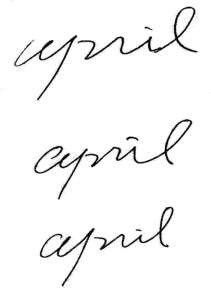 april
april
april